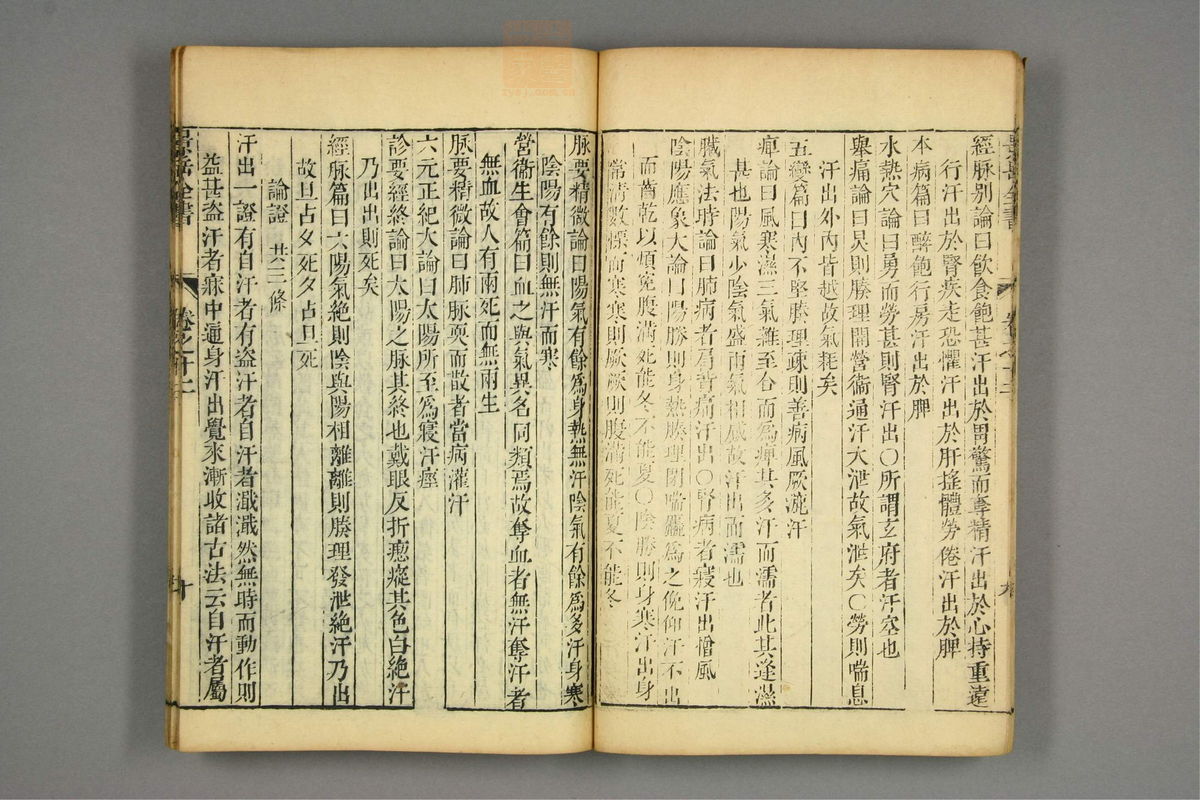 經脉别論曰飲食飽甚汗出於胃驚而奪精汗出於心持重遠
行汗出於腎疾走恐懼汗出於肝搖體勞倦汗出於脾
本病篇曰醉飽行房汗出於脾
水熱穴論曰勇而勞甚則腎汗出〇所謂玄府者汗空也
舉痛論曰炅則腠理開營衛通汗大泄故氣泄矣〇勞則喘息
汗出外內皆越故氣耗矣
五變篇曰肉不堅腠理疎則善病風厥漉汗
痺論曰風寒濕三氣雜至合而為痺其多汗而濡者此其逢濕
甚也陽氣少陰氣盛兩氣相感故汗出而濡也
臟氣法時論曰肺病者肩背痛汗出〇腎病者寢汗出憎風
陰陽應象大論曰陽勝則身熱腠理閉喘麤為之俛仰汗不出
而齒乾以煩寃腹滿死能冬不能夏〇陰勝則身寒汗出身
常清數慄而寒寒則厥厥則腹滿死能夏不能冬
脉要精微論曰陽氣有餘為身熱無汗陰氣有餘為多汗身寒
陰陽有餘則無汗而寒
營衛生會篇曰血之與氣異名同類焉故奪血者無汗奪汗者
無血故人有兩死而無兩生
脉要精微論曰肺脉耎而散者當病灌汗
六元正紀大論曰太陽所至為寢汗痙
診要經終論曰太陽之脉其終也戴眼反折瘛瘲其色白絕汗
乃出出則死矣
經脉篇曰六陽氣絕則陰與陽相離離則腠理發泄絕汗乃出
故旦占夕死夕占旦死
論證 共三條
汗出一證有自汗者有盜汗者自汗者濈濈然無時而動作則
益甚盜汗者寐中通身汗出覺來漸收諸古法云自汗者屬
景岳全書
卷之十二
十